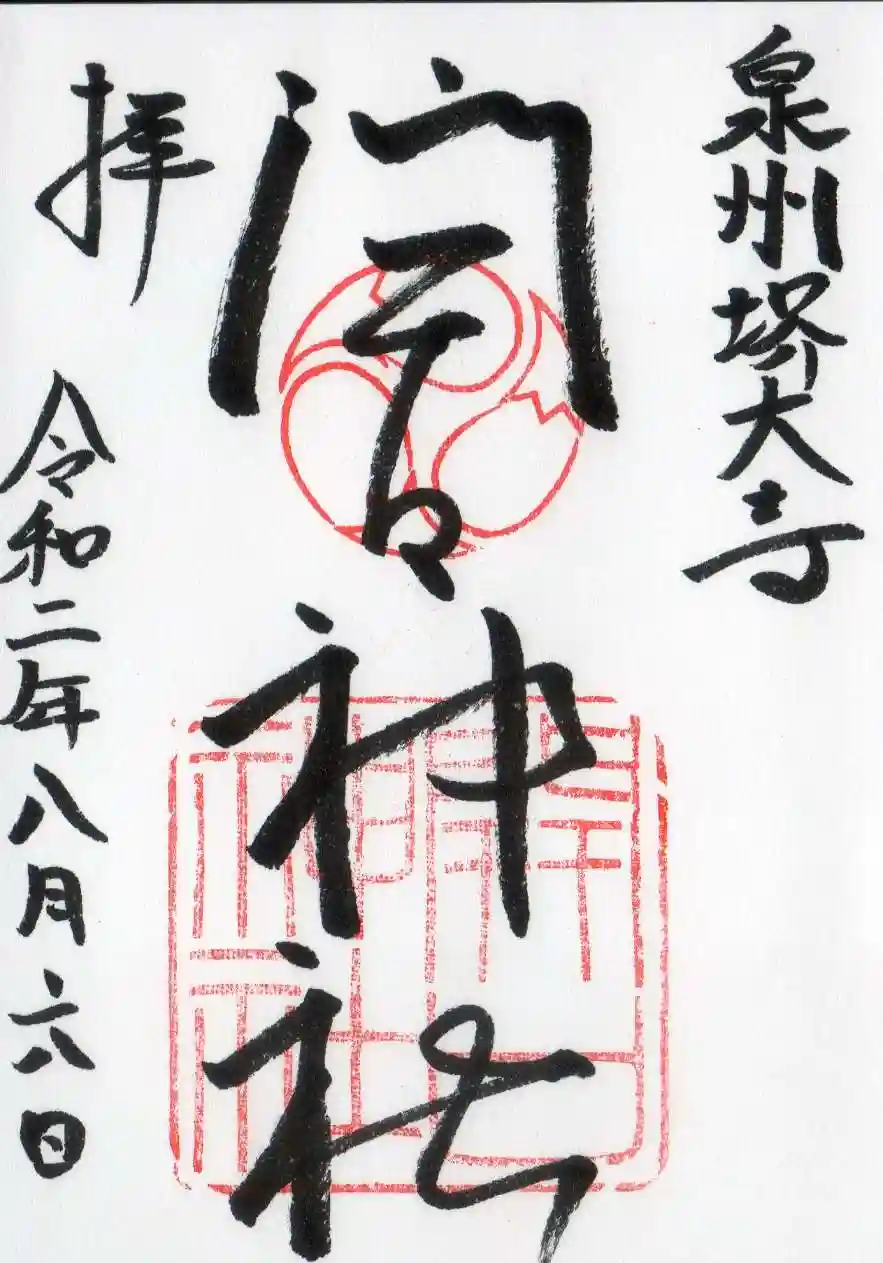 泉州堺大寺
開口神社
拝
令和二年八月六日
開口
神社